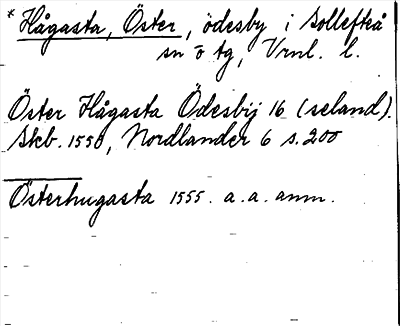 * Hågasta, Öster, ödesby i Sollefteå
sn o tg, Vrnl. l.
Öster Hågasta Ödesbij 16 (seland).
Skb. 1550, Nordlander 6 s. 200
Österhugasta 1555. a. a. anm.